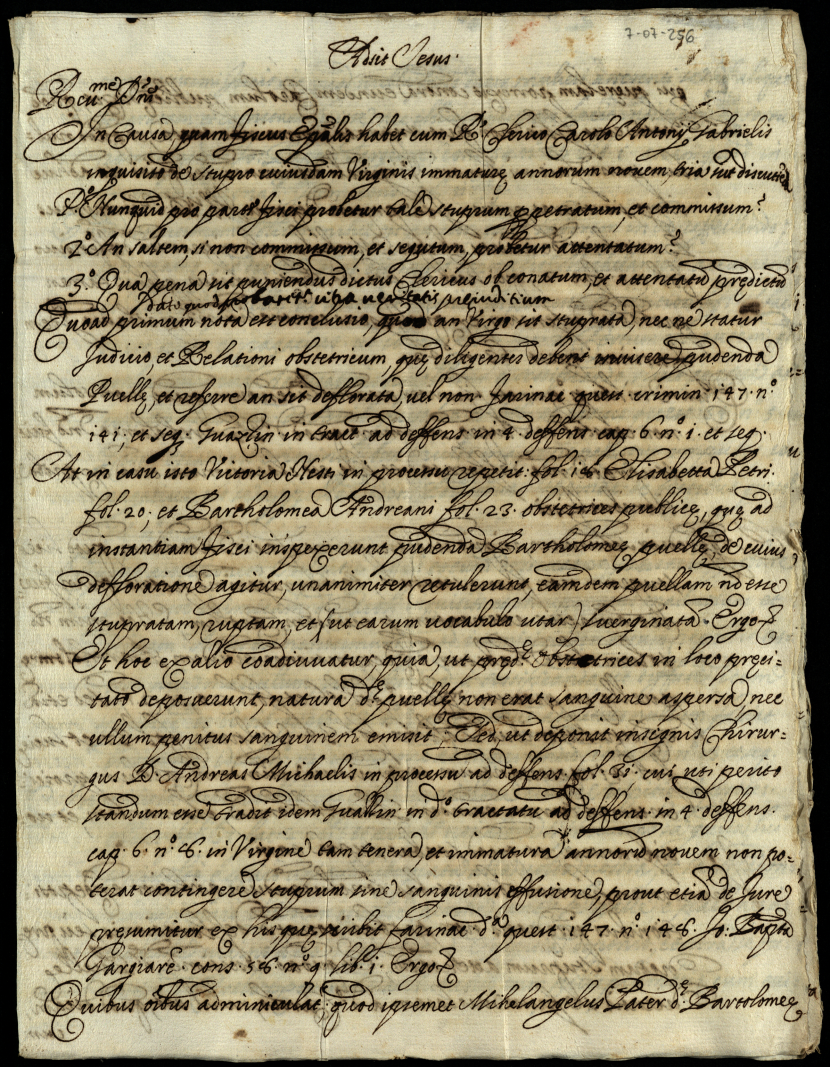 7-07-256
Adsit Iesus.
Reu.me D.ne
In Causa quam Fiscus Epālis habet cum R.o Clerico Carolo Antonij Gabrielis
inquisito de stupro cuiusdam Virginis immaturę annorum novem, tria sūt discutiēda
P.o Nunquid pro parte Fisci probetur tale stuprum ppetratum, et commissum?
2.o An saltem, si non commissum, et sequtum, probetur attentatum?
3.o Qua pena sit puniendus dictus Clericus ob conatum, et attentatū prędictū
dato quod
veritatis preiuditium
Quoad primum nota est conclusio, quod an Virgo sit stuprata, nec ne statur
Judicio, et Relationi obstetricum, quę diligenter debent inuisere pudenda
Puellę, et referre an sit deflorata, uel non Farinac quest crimin 147. n.o
141, et seq. Guazzin in tract ad deffens in 4. deffens cap 6. n.o 1. et seq.
At in casu isto Victoria Nesti in processu repetit: fol. 18. Elisabetta Petri
fol. 20, et Bartholomea Andreani fol. 23. obstetrices publicę, quę ad
instantiam Fisci inspexerunt pudenda Bartholomeę puellę, de cuius
defloratione agitur, unanimiter retulerunt, eamdem puellam nō esse
stupratam, ruptam, et (ut earum uocabulo utar) suerginatā. Ergo
Et hoc ex alio coadiuuatur, quia, ut pręd.e Obstetrices in loco pręci-
tato deposuerunt, natura d.e puellę non erat sanguine aspersa, nec
ullum penitus sanguinem emisit; Sed, ut deponit insignis Chirur=
gus D. Andreas Michaelis in processu ad deffens fol. 31. cui uti perito
standum esse tradit idem Guazzin in d.o tractatu ad deffens in 4. deffens.
cap. 6. n.o 8. in Virgine tam tenera, et immatura annorū novem non po=
terat contingere stuprum sine sanguinis effusione, prout etiā de Jure
pręsumitur ex his quę scribit Farinac d.a quest 147. n.o 148. Jo: Bapta
cons. 58. n.o 9 lib. 1. Ergo
Quibus oībus adminiculat, quod ipsemet Mihelangelus Pater d.e Bartolomeę